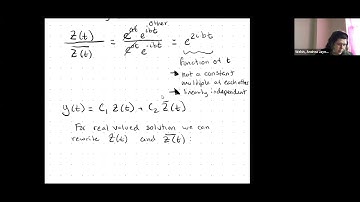 other
z(t) / z̅(t) = e^{at} e^{ibt} / e^{at} e^{-ibt} = e^{2ibt}
function of t
→ not a constant multiple of each other
→ linearly independent
y(t) = C₁ z(t) + C₂ z̅(t)
For real valued solution we can
rewrite z(t) and z̅(t) :